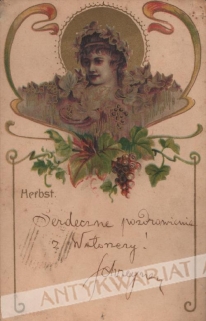 Herbst.
Serdeczne pozdrowienie
z
ANTYKWARIAT